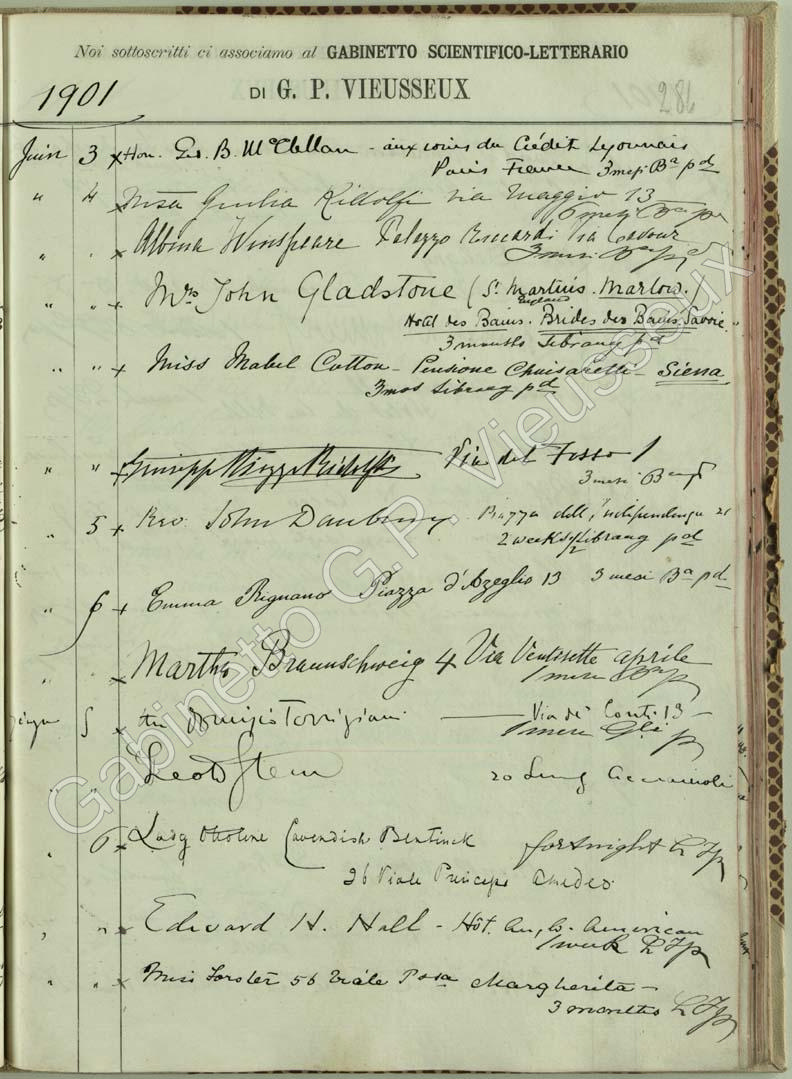 Noi sottoscritti ci associamo al GABINETTO SCIENTIFICO-LETTERARIO
1901 DI G. P. VIEUSSEUX 286
Juin 3 x Hon. Geo. B. McClellan - aux soins du Crédit Lyonnais
Paris France 3 mesi Ba pd
" 4 x Giulia Ridolfi via Maggio 13
x Albina Winspeare Palazzo Riccardi Via Cavour
3 mesi
" " x Mrs John Gladstone (St. Martins. Marlow.)
England
Hotel des Bains. Brides des Bains. Savoie
3 months Library pd
" " x Miss Mabel Cotton - Pensione Chiusarelli - Siena
3 mos Library pd
" " x Ridolfi Via del Fosso 1
3 mesi
5 x Rev. John Piazza dell'indipendenza 21
2 weeks 1/2 Library pd
" 6 x Emma Rignano Piazza d'Azeglio 13 3 mesi Ba pd
" x Martha Braunschweig 4 Via Ventisette aprile
1 mese
5 Torrigiani - Via de' Conti 13 -
1 mese
Leo D Stein 20 Lung Acciaiuoli
" 6 x Lady Ottoline Cavendish Bentinck fortnight
26 Viale Principe Amedeo
" " x Edward H. Hall - Hôt. Anglo-American
1 week
" " x Miss Forster 56 Viale Pssa Margherita -
3 months
Gabinetto G.P. Vieusseux